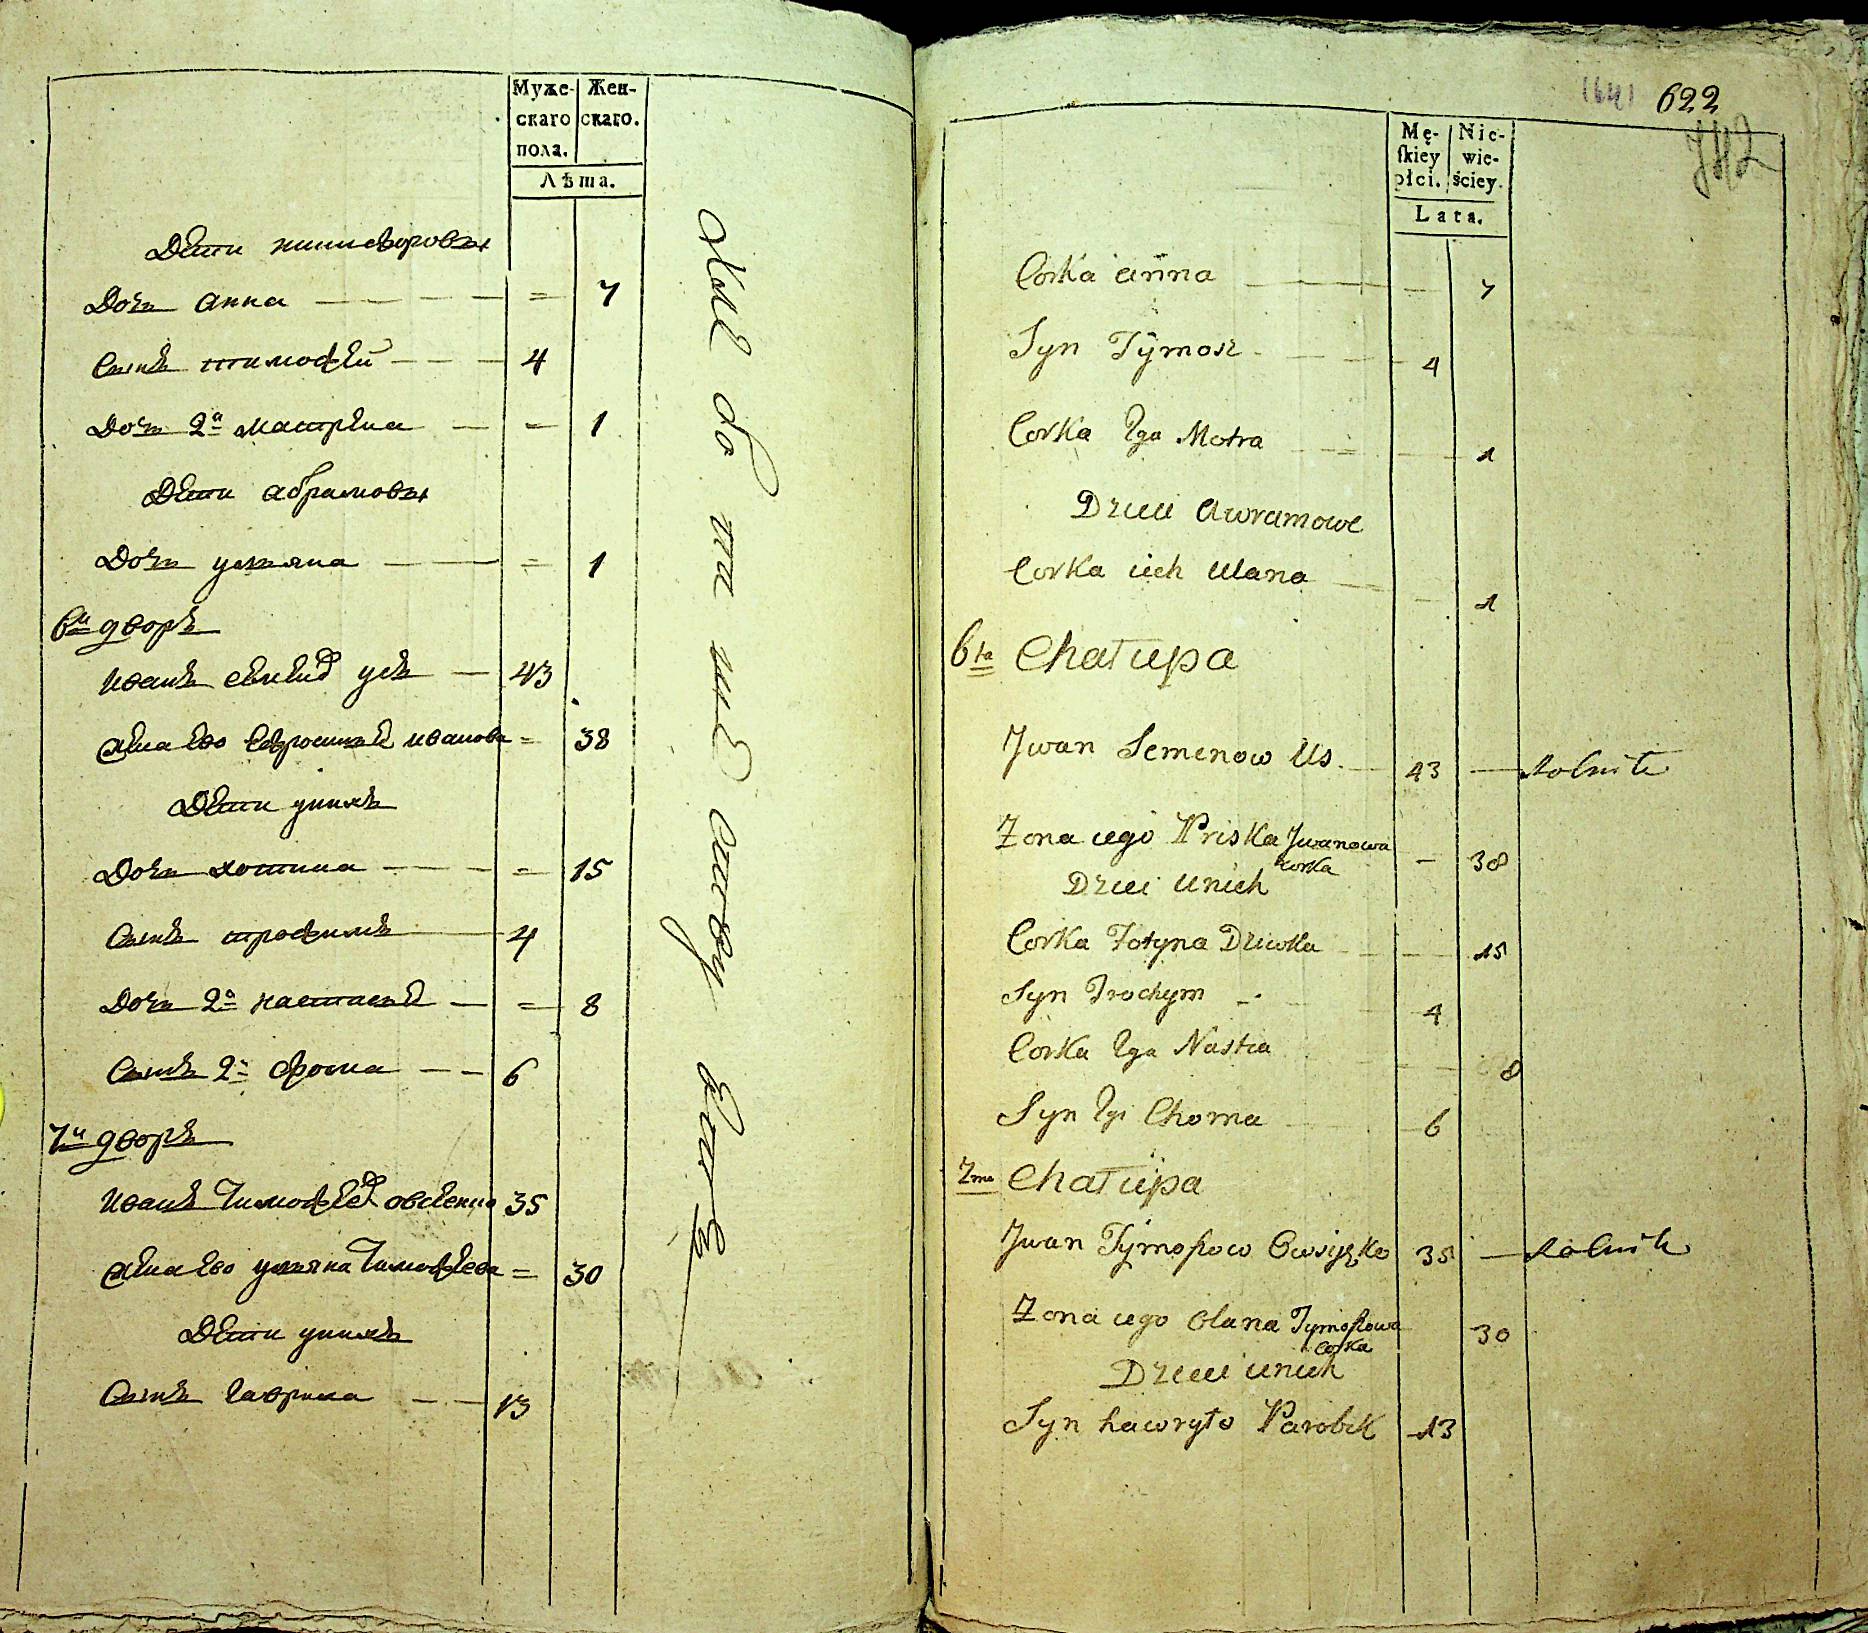 Муже-
скаго
пола.
Жен-
скаго.
Лѣта.
Дети
Дочь анна 7
Сынъ тимофей 4
Дочь 2я матрена 1
Дети абрамовы
Дочь ульяна 1
6й дворъ
Иванъ усъ 43
жена ево иванова 38
Дети унихъ
Дочь хотина 15
Сынъ трофимъ 4
Дочь 2я настасья 8
Сынъ 2й фома 6
7й дворъ
Иванъ Тимофеев овсеенко 35
жена ево ульяна Тимофеева 30
Дети унихъ
Сынъ Гаврила 13
622
742
Mę-
ſkiey
płci.
Nie-
wie-
ściey.
Lata.
Corka anna 7
Syn Tymosz 4
Corka 2ga Motra 1
Dzieci Awramowe
Corka iich Ulana 1
6ta Chałupa
Jwan Semenow Us 43 Rolnik
Zona iego Priska Jwanowa corka 38
Dzieci Unich
Corka Fotyna Dziewka 15
Syn Trochym 4
Corka 2ga Nastia 8
Syn 2gi Choma 6
7ma Chałupa
Jwan 35 Rolnik
Zona iego Olana corka 30
Dzieci unich
Syn hawryło Parobek 13